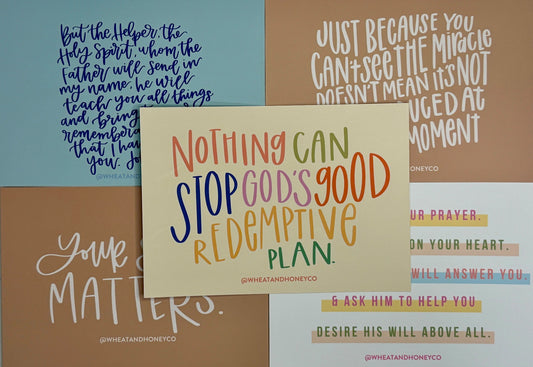 But the Helper, the
Holy Spirit, whom the
Father will send in
my name, he will
teach you all things
and bring
that I ha
you. Jo
@WHEATANDHONEYCO
JUST BECAUSE YOU
CAN'T SEE THE MIRACLE
DOESN'T MEAN IT'S NOT
UCED AT
MOMENT
@WHEATANDHONEYCO
NOTHING CAN
STOP GOD'S GOOD
REDEMPTIVE
PLAN.
@WHEATANDHONEYCO
Your
MATTERS.
@WHEATANDHONEYCO
UR PRAYER.
ON YOUR HEART.
WILL ANSWER YOU.
& ASK HIM TO HELP YOU
DESIRE HIS WILL ABOVE ALL.
@WHEATANDHONEYCO